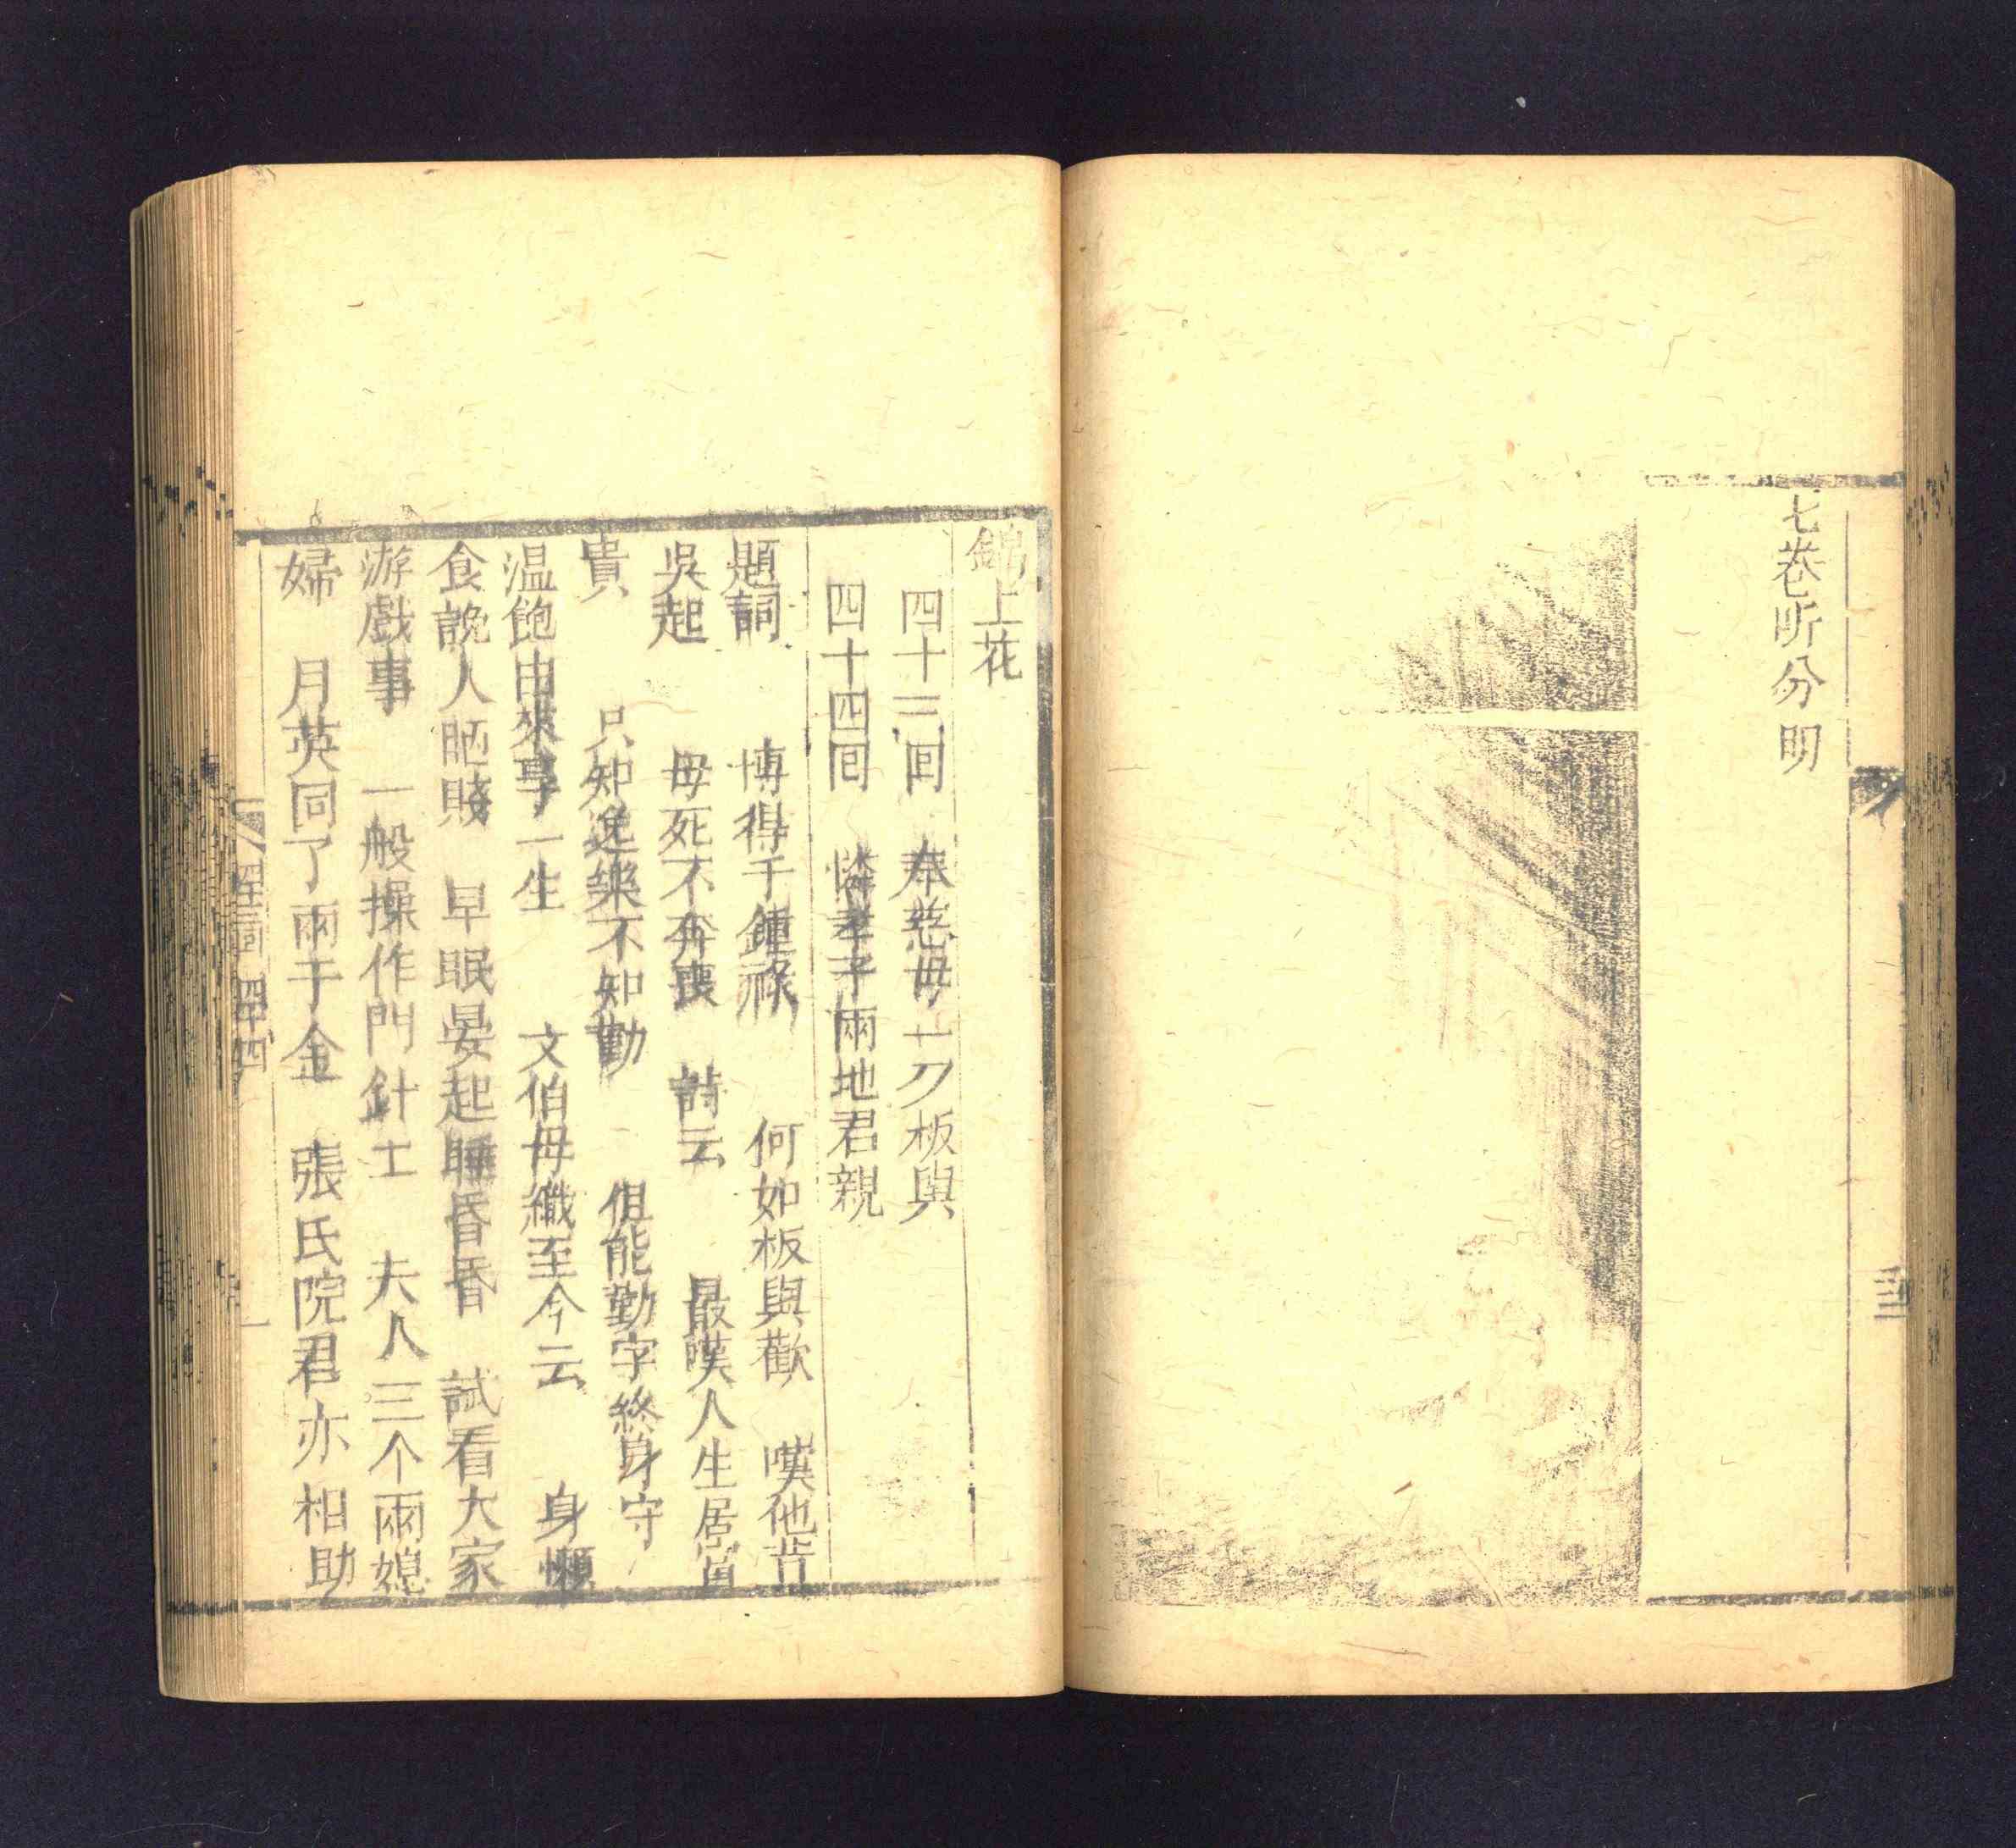 七卷听分明
錦上花
四十三囬 奉慈母一刀板輿
四十四囬 憐孝子兩地君親
題詞 博得千鍾祿 何如板輿歡 嘆他昔
吳起 毋死不奔喪 詩云 最嘆人生居富
貴 只知逸樂不知勤 但能勤字終身守
温飽由來享一生 文伯母織至今云 身懶
食謊人晒賤 早眠晏起睡昏昏 試看大家
游戲事 一般操作門針士 夫人三个兩媳
婦 月英同了兩千金 張氏院君亦相助